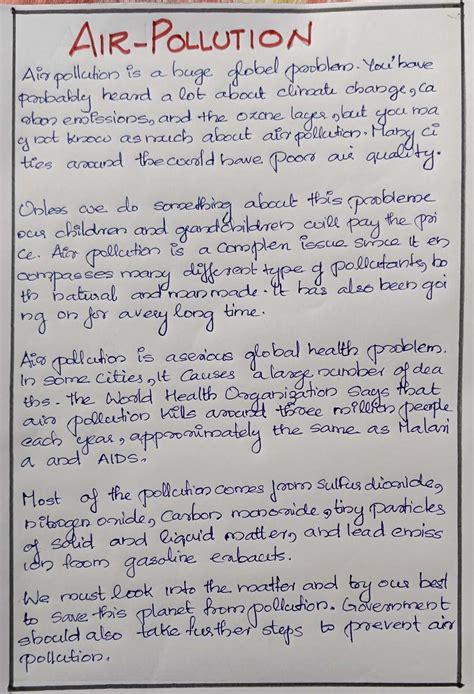 AIR-POLLUTION
Air pollution is a huge globel problem. You have
probably heard a lot about climate change, ca
rbon emissions, and the ozone layer, but you ma
y not know as much about air pollution. Many ci
ties around the world have poor air quality.
Unless we do something about this probleme
our children and grandchildren will pay the pri
ce. Air pollution is a complex issue since it en
compasses many different type of pollutants, bo
th natural and manmade. It has also been goi
ng on for a very long time.
Air pollution is a serious global health problem.
In some cities, it causes a large number of dea
ths. The World Health Organization says that
air pollution kills around three million people
each year, approximately the same as Malari
a and AIDS.
Most of the pollution comes from sulfur dioxide,
nitrogen oxide, Carbon monoxide, tiny particles
of solid and liquid matter, and lead emiss
ion from gasoline exhausts.
We must look into the matter and try our best
to save this planet from pollution. Government
should also take further steps to prevent air
pollution.